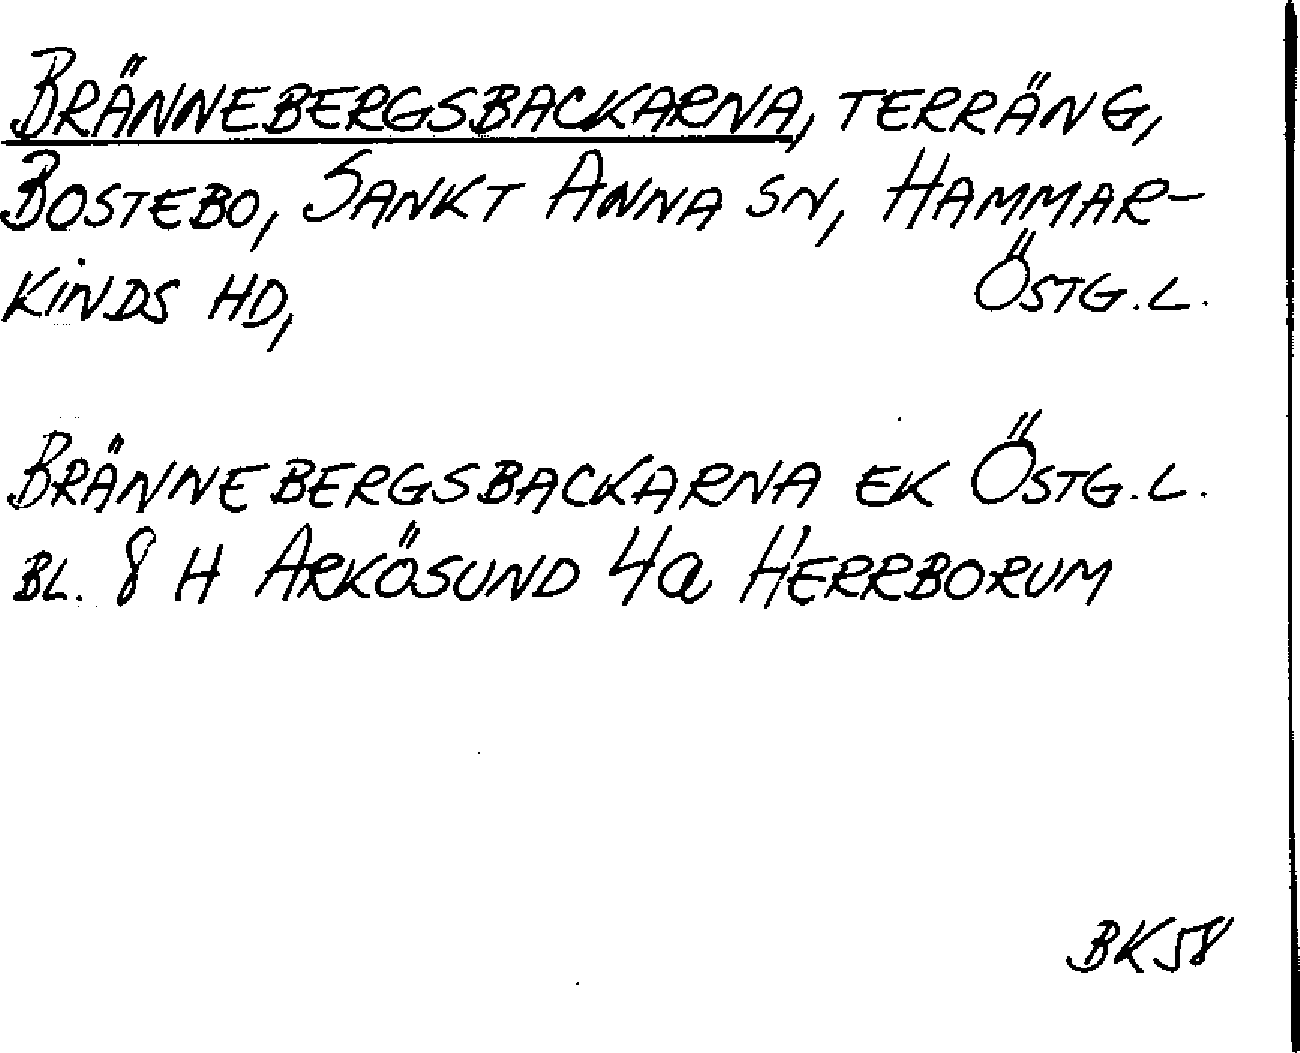 BRÄNNEBERGSBACKARNA, TERRÄNG,
BOSTEBO, SANKT ANNA SN, HAMMAR-
KINDS HD, ÖSTG.L.
BRÄNNEBERGSBACKARNA EK ÖSTG.L.
BL. 8 H ARKÖSUND 4a HERRBORUM
BK58